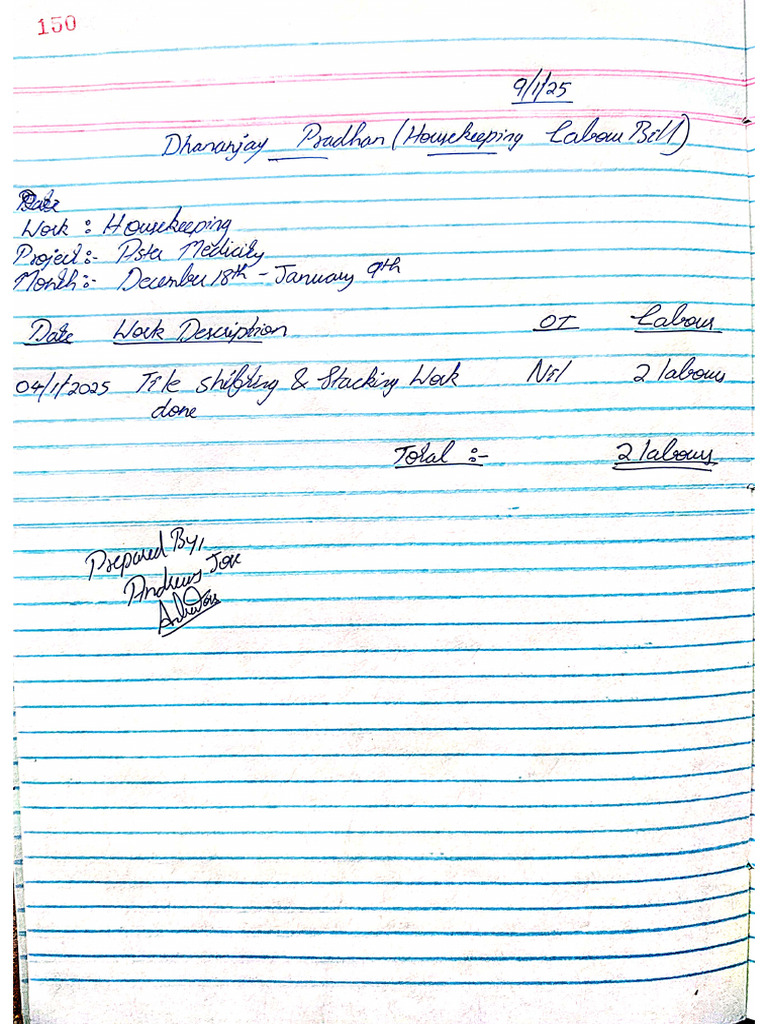 150
9/1/25
Dhananjay Pradhan (Housekeeping Labour Bill)
Date
Work : Housekeeping
Project :- Aster Medicity
Month :- December 18th - January 9th
Date Work Description OT Labour
04/1/2025 Tile shifting & Stacking Work Nil 2 labours
done
Total :- 2 labours
Prepared By,
Andrews Jose